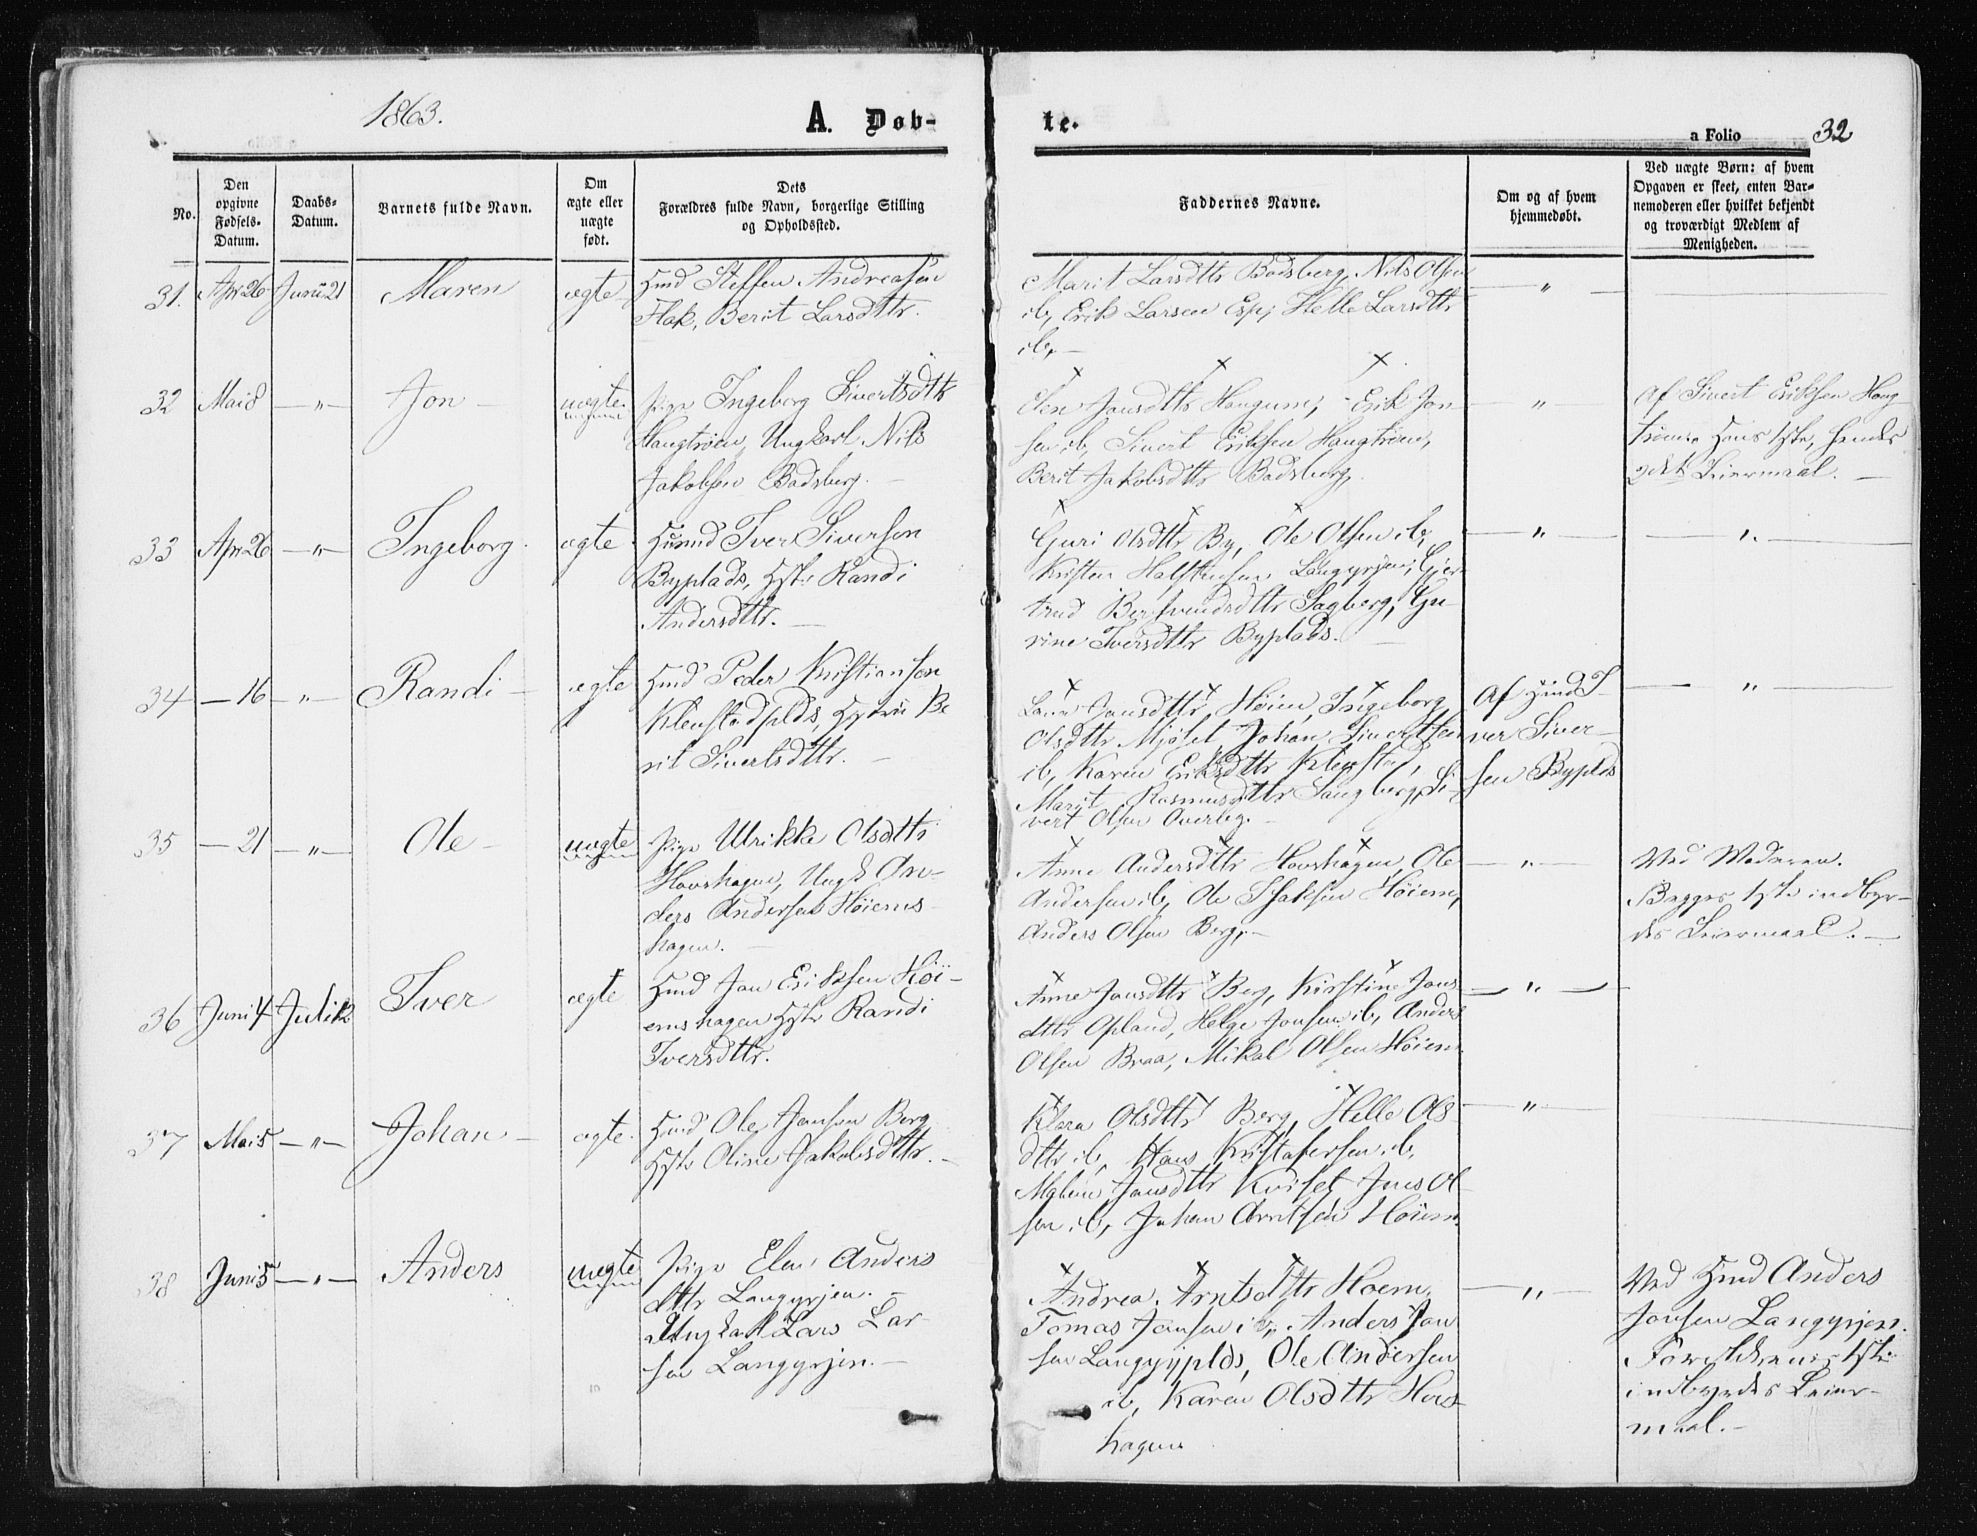 1863.
A. Døb-
te.
a Folio 32
No.
Den opgivne Fødsels-Datum.
Daabs-Datum.
Barnets fulde Navn.
Om ægte eller uægte født.
Dets Forældres fulde Navn, borgerlige Stilling og Opholdssted.
Faddernes Navne.
Om og af hvem hjemmedøbt.
Ved uægte Børn: af hvem Opgaven er skeet, enten Barnemoderen eller hvilket bekjendt og troværdigt Medlem af Menigheden.
31. Apr 26 Juni 21 Maren ægte
Hmd Steffen Andreasen
Flak, Berit Larsdttr.
Marit Larsdttr Badsberg, Nils Olsen
ib, Erik Larsen Esp, Helle Larsdttr
ib, —
— „ —
32 Mai 8 — „ — Jon — uægte.
Pige Ingeborg Sivertsdttr
Haugtrøen, Ungkarl Nils
Jakobsen Badsberg. —
Jonsdttr Haugum, Erik Jon-
sen ib, Sivert Eriksen Haugtrøen,
Berit Jakobsdttr Badsberg.
— „
Af Sivert Eriksen Haug-
trøen. Hans 1ste, hendes
2det Leiermaal. —
33 Apr 26 — „ — Ingeborg. ægte.
Huusmd Iver Siversen
Byplads, Hstr Randi
Andersdttr. —
Guri Olsdttr By, Ole Olsen ib,
Kristen Halstensen Langgyrjen, Gjer-
trud Bersvendsdttr Sagberg, Gu-
rine Iversdttr Byplads. —
— „ —
— „. —
34 — 16 — „ — Randi — ægte
Hmd Peder Kristiansen
Klenstadplds, Hstru Be
rit Sivertsdttr. —
Jonsdttr Høiem, Ingeborg
Olsdttr Mjøset Johan Sivertsen
ib, Karen Eriksdttr Klenstad,
Marit Rasmusdttr Saugberg, Si-
vert Olsen Overleg. —
Af Hmd I-
ver Siver-
sen Byplds
— „ —
35 — 21 — „ — Ole — uægte
Pige Ulrikke Olsdttr
Hovshagen, Ungk An-
ders Andersen Høiems-
hagen. —
Anne Andersdttr Hovshagen, Ole
Andersen ib, Ole Isaksen Høiem,
Anders Olsen Berg, —
— „ —
Ved Moderen.
Begges 1ste indbyr-
des Leiermaal. —
36 Juni 4 Juli 12 Iver ægte
Hmd Jon Eriksen Høi-
emshagen Hstr Randi
Iversdttr.
Anne Jonsdttr Berg, Kirstine Jons
dttr Opland, Helge Jonsen ib, Anders
Olsen Braa, Mikal Olsen Høiem
— „ —
37 Mai 5 — „ — Johan — ægte.
Hmd Ole Jensen Berg
Hstr Oline Jakobsdttr. —
Klara Olsdttr Berg, Helle Ols-
dttr ib, Hans Kristofersen ib,
Malene Jonsdttr Kviset, Jens Ol-
sen ib, Johan Arntsen Høiem.
— „ —
38 Juni 5 — „ — Anders uægte
Pige Elen Anders
dttr Langgyrjen. —
Ungkarl Lars Lar-
sen Langgyrjen. —
Andrea Arntsdttr Hoem,
Tomas Jensen ib, Anders Jon
sen Langgyrjplds, Ole Andersen
ib, Karen Olsdttr Hovs-
hagen.
— „ —
Ved Hmd Anders
Jonsen Langgyrjen.
Forældrenes 1ste
indbyrdes Leier-
maal. —